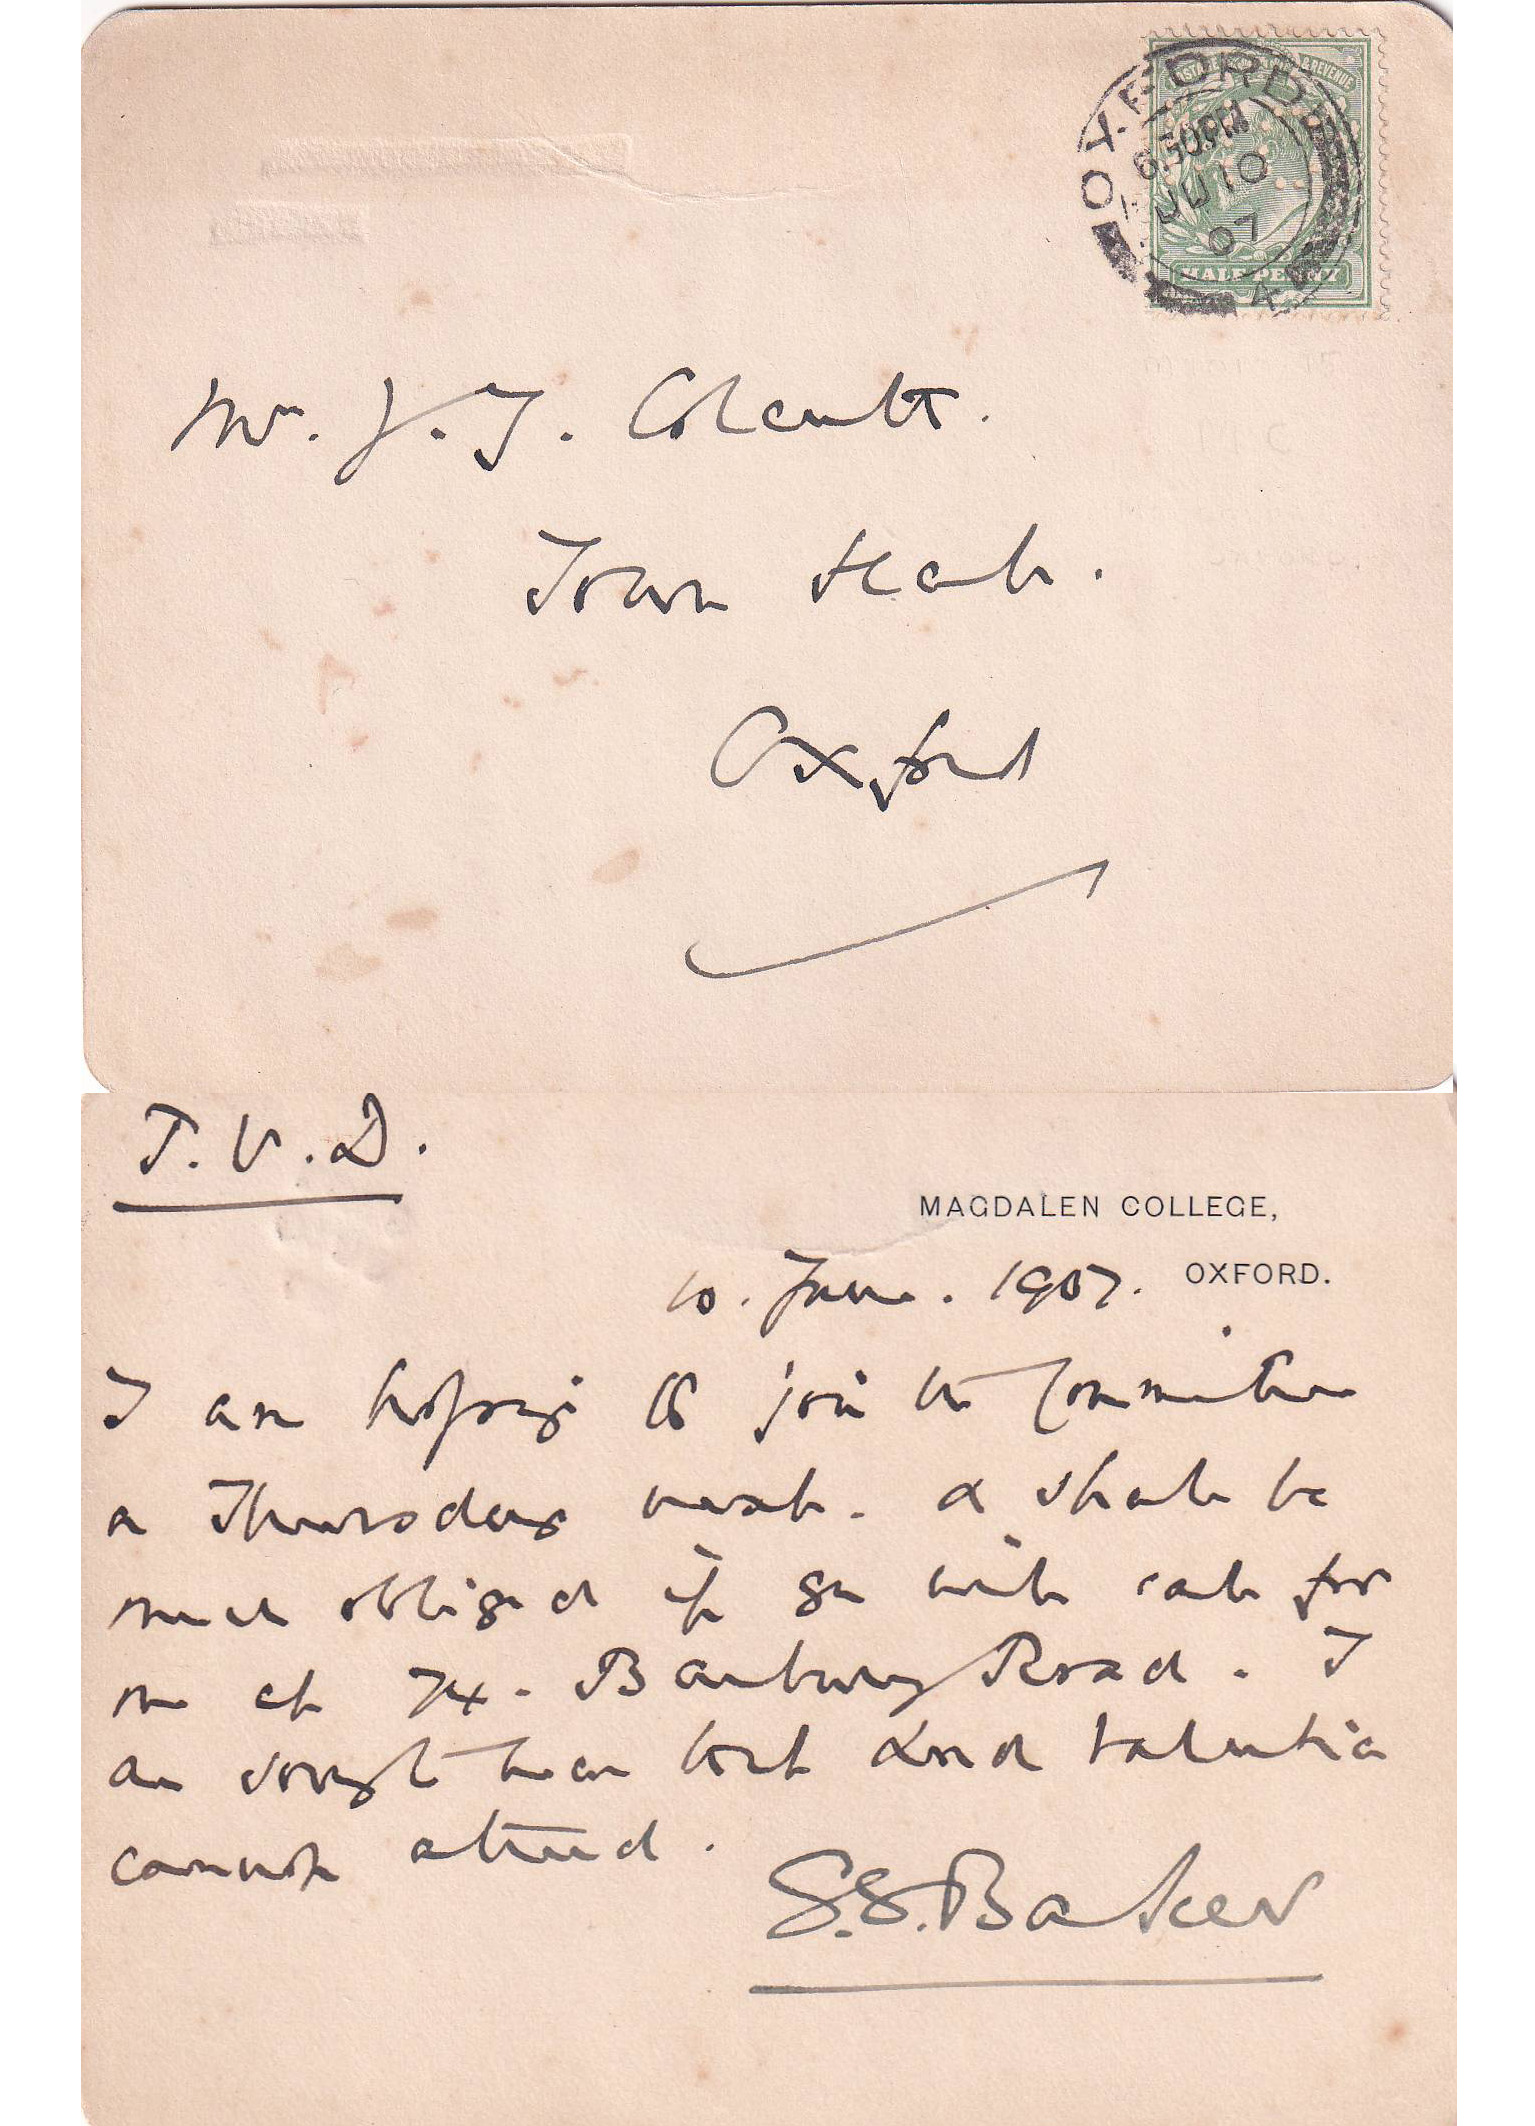 POSTAGE & REVENUE
OXFORD
6.30PM
JU 10
07
4
HALF PENNY
Mr. J. J. Colcutt.
Town Hall.
Oxford
T.V.D.
MAGDALEN COLLEGE,
OXFORD.
10. June. 1907.
I am hoping to join the Committee
on Thursday next. & shall be
much obliged if you will call for
me at 74. Banbury Road. I
am sorry to hear that Lord Valentia
cannot attend.
S.S. Baker